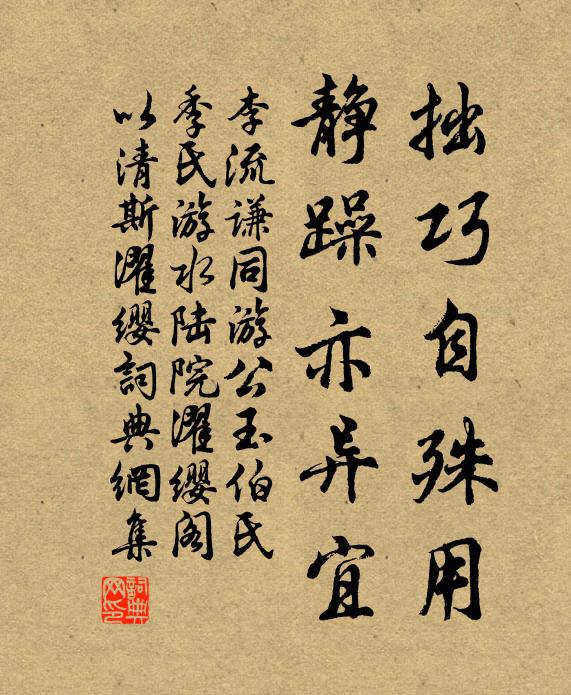 拙巧自殊用
静躁亦异宜
李流谦同游公玉伯氏
季氏游水陆院濯缨阁
以清斯濯缨詞典網集
詞典网印